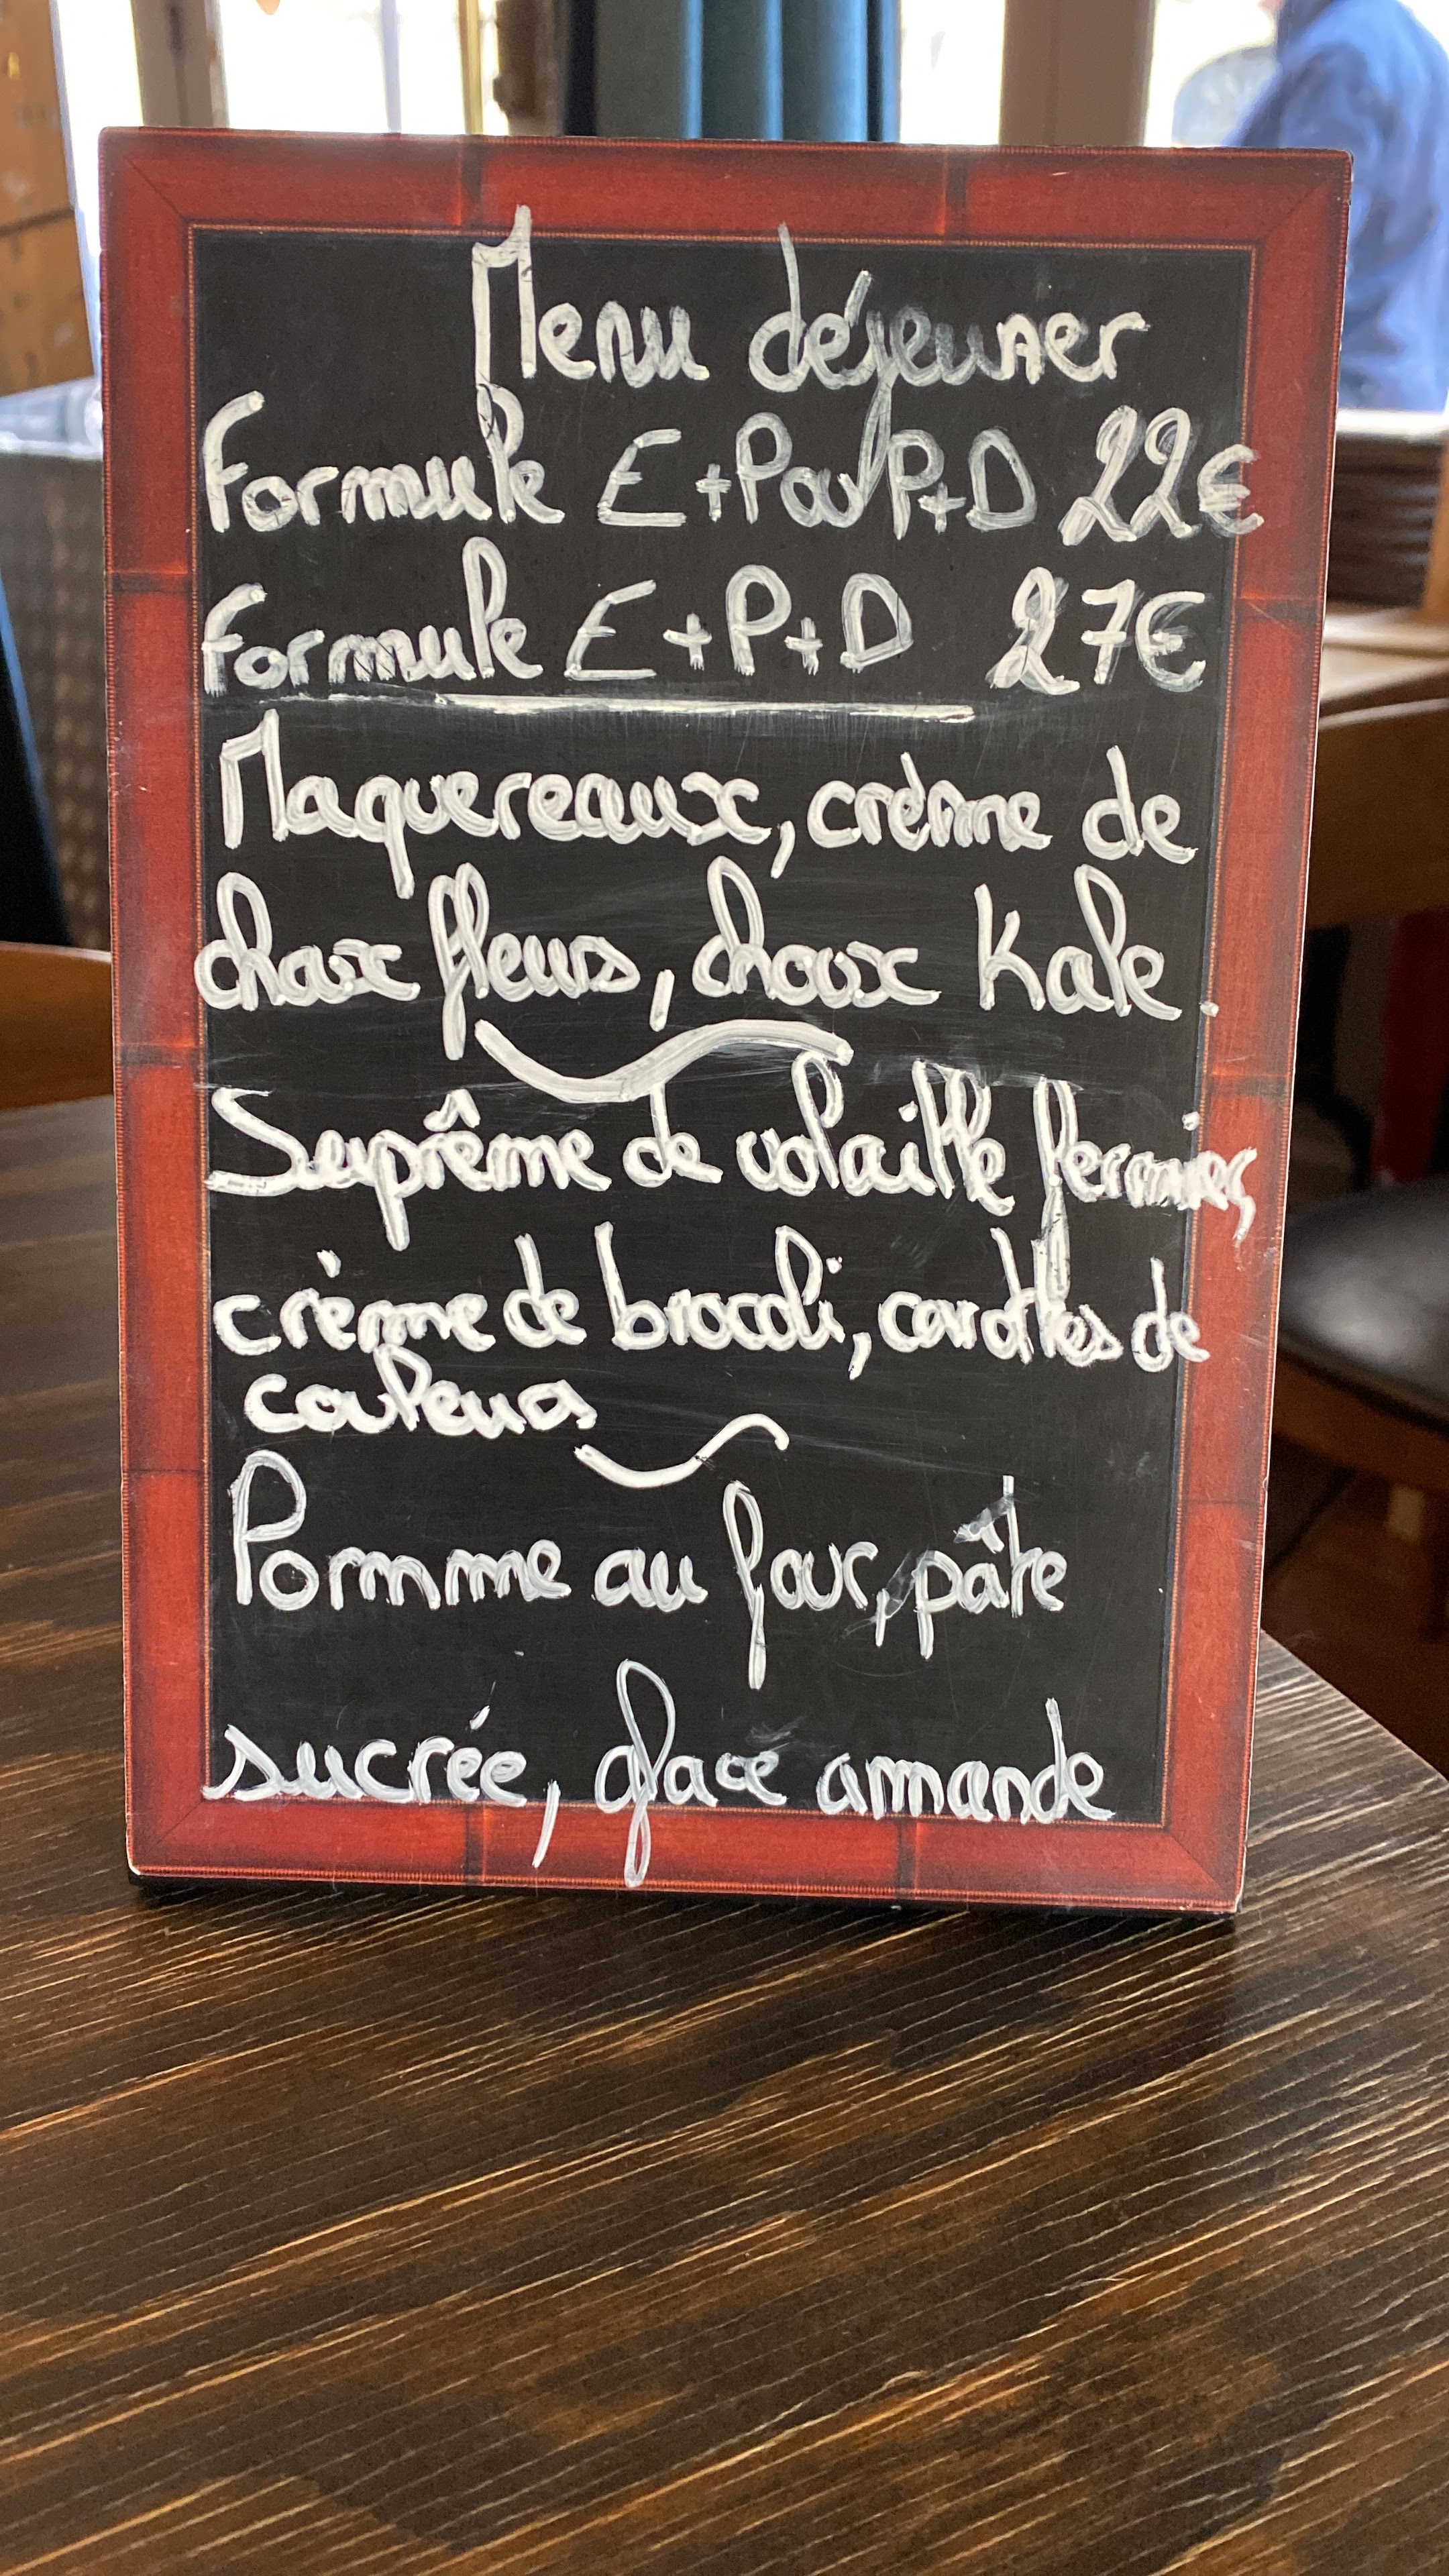 Menu déjeuner
Formule E+P ou P+D 22€
Formule E+P+D 27€
Maquereaux, crème de
choux fleurs, choux Kale.
Suprême de volaille fermier,
crème de brocoli, carottes de
couleurs
Pomme au four, pâte
sucrée, glace amande